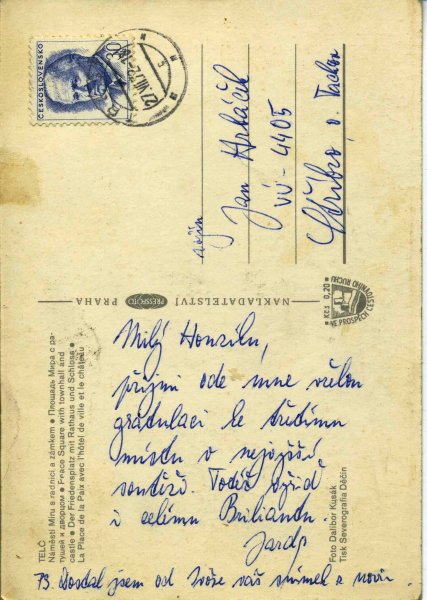 ČESKOSLOVENSKO
30
vojín
Jan Hrbáček
VÚ - 4405
Stříbro, o. Tachov
NAKLADATELSTVÍ PRESSFOTO PRAHA
Kčs 0,20
VE PROSPĚCH CESTOVNÍHO RUCHU
TELČ
Náměstí Míru s radnicí a zámkem ● Площадь Мира с ра-
тушей и дворцом ● Peace Square with townhall and
castle ● Der Friedensplatz mit Rathaus und Schloss ●
La Place de la Paix avec l'hôtel de ville et le château
Milý Honzíku,
přijmi ode mne vřelou
gratulaci ke třetímu
místu v nejvyšší
soutěži. Totéž vyřiď
i celému Briliantu.
Jarda
PS. Dostal jsem od Zvěře váš snímek z novin.
Foto Dalibor Kusák
Tisk Severografia Děčín